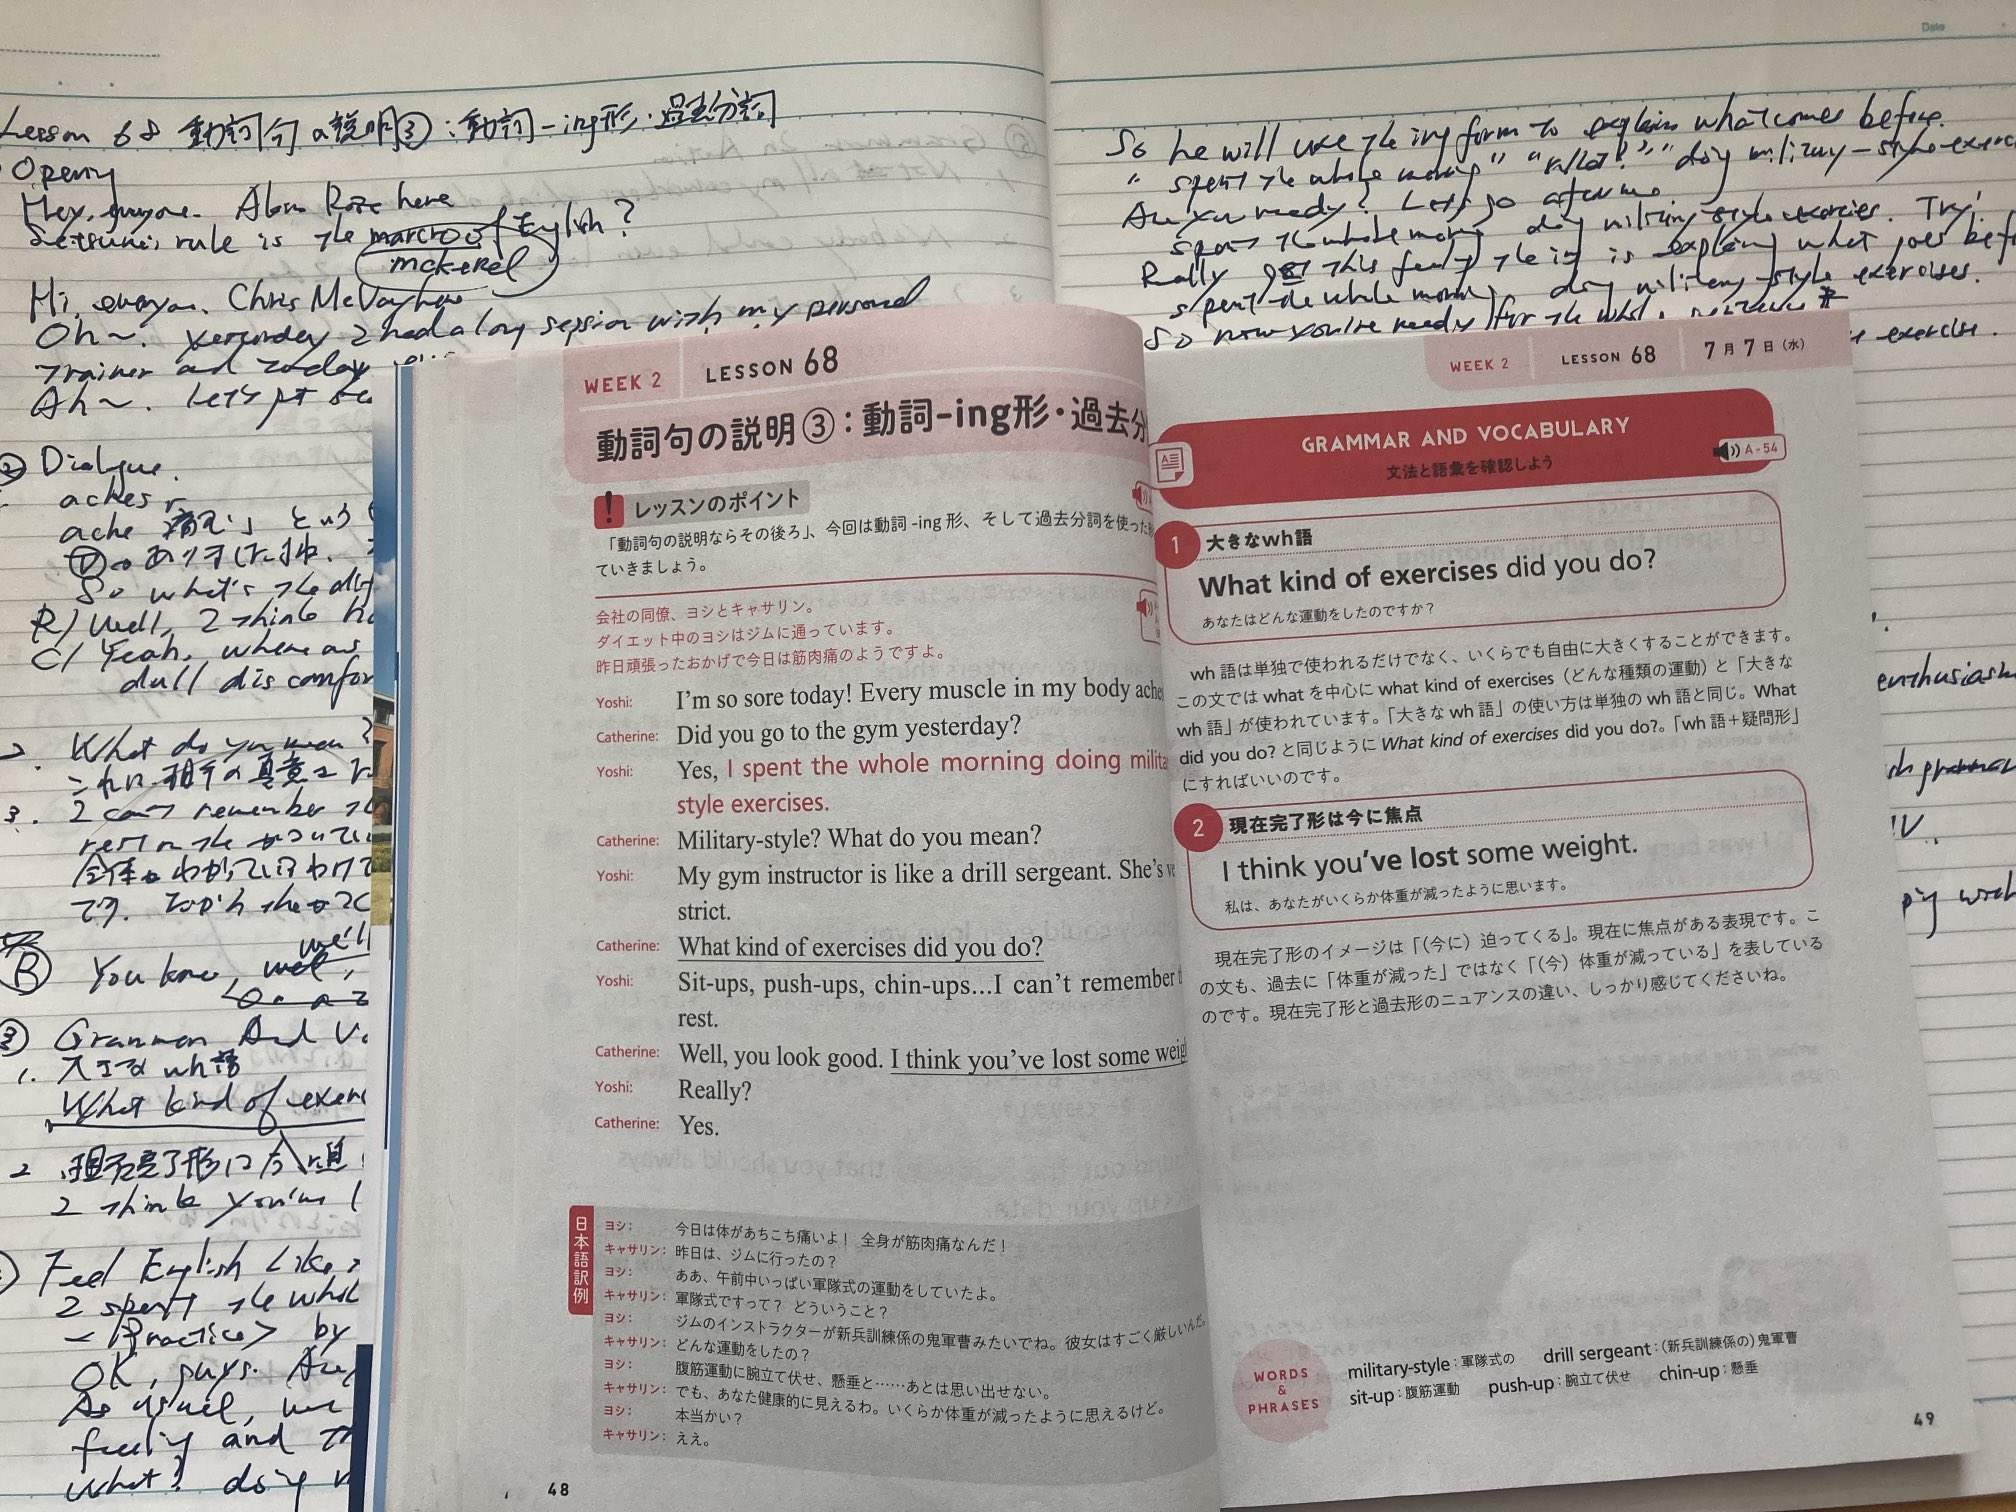 Lesson 68 動詞句の説明③：動詞-ing形・過去分詞
Opening
Hey, everyone. Here
Setsumei rule is the of English?
mckerel
Hi, everyone. Chris McVay here
Oh~. Yesterday I had a long session with my personal
trainer and today
Ah~. Let's
② Dialogue
aches
ache 痛む」という
ありました
So what's the
R/ Well, I think
C/ Yeah, whereas
dull discomfort
What do you mean?
3. I can't remember the
rest
You know, well,
③ Grammar And
1. 大きな wh語
What kind of exer
2 現在完了形は今に
I think you've l
Feel English Like
I spent the whol
<Practice> by
OK, guys. Are
As usual, we
feeling and
what? doing
Date
So he will use the ing form to explain what comes before.
" spent the whole morning" "what?" "doing military-style exerci
Are you ready? Let's go after me
spent the whole morning doing military-style exercises. Try!
Really get this feeling the ing is explaining what goes befo
spent the whole morning doing military-style exercises.
So now you're ready for the whole
exercise.
enthusiasm
WEEK 2 LESSON 68
動詞句の説明③：動詞-ing形・過去分
レッスンのポイント
「動詞句の説明ならその後ろ」、今回は動詞 -ing 形、そして過去分詞を使った
ていきましょう。
会社の同僚、ヨシとキャサリン。
ダイエット中のヨシはジムに通っています。
昨日頑張ったおかげで今日は筋肉痛のようですよ。
Yoshi: I'm so sore today! Every muscle in my body ache
Catherine: Did you go to the gym yesterday?
Yoshi: Yes, I spent the whole morning doing milita
style exercises.
Catherine: Military-style? What do you mean?
Yoshi: My gym instructor is like a drill sergeant. She's ve
strict.
Catherine: What kind of exercises did you do?
Yoshi: Sit-ups, push-ups, chin-ups...I can't remember t
rest.
Catherine: Well, you look good. I think you've lost some weig
Yoshi: Really?
Catherine: Yes.
日本語訳例
ヨシ: 今日は体があちこち痛いよ！ 全身が筋肉痛なんだ！
キャサリン: 昨日は、ジムに行ったの？
ヨシ: ああ、午前中いっぱい軍隊式の運動をしていたよ。
キャサリン: 軍隊式ですって？ どういうこと？
ヨシ: ジムのインストラクターが新兵訓練係の鬼軍曹みたいでね。彼女はすごく厳しいんだ。
キャサリン: どんな運動をしたの？
ヨシ: 腹筋運動に腕立て伏せ、懸垂と……あとは思い出せない。
キャサリン: でも、あなた健康的に見えるわ。いくらか体重が減ったように思えるけど。
ヨシ: 本当かい？
キャサリン: ええ。
48
WEEK 2 LESSON 68 7月7日（水）
GRAMMAR AND VOCABULARY
文法と語彙を確認しよう
A-54
1 大きなwh語
What kind of exercises did you do?
あなたはどんな運動をしたのですか？
wh 語は単独で使われるだけでなく、いくらでも自由に大きくすることができます。
この文では what を中心に what kind of exercises（どんな種類の運動）と「大きな
wh 語」が使われています。「大きな wh 語」の使い方は単独の wh 語と同じ。What
did you do? と同じように What kind of exercises did you do?。「wh 語＋疑問形」
にすればいいのです。
2 現在完了形は今に焦点
I think you've lost some weight.
私は、あなたがいくらか体重が減ったように思います。
現在完了形のイメージは「（今に）迫ってくる」。現在に焦点がある表現です。こ
の文も、過去に「体重が減った」ではなく「（今）体重が減っている」を表している
のです。現在完了形と過去形のニュアンスの違い、しっかり感じてくださいね。
WORDS & PHRASES
military-style：軍隊式の drill sergeant：（新兵訓練係の）鬼軍曹
sit-up：腹筋運動 push-up：腕立て伏せ chin-up：懸垂
49